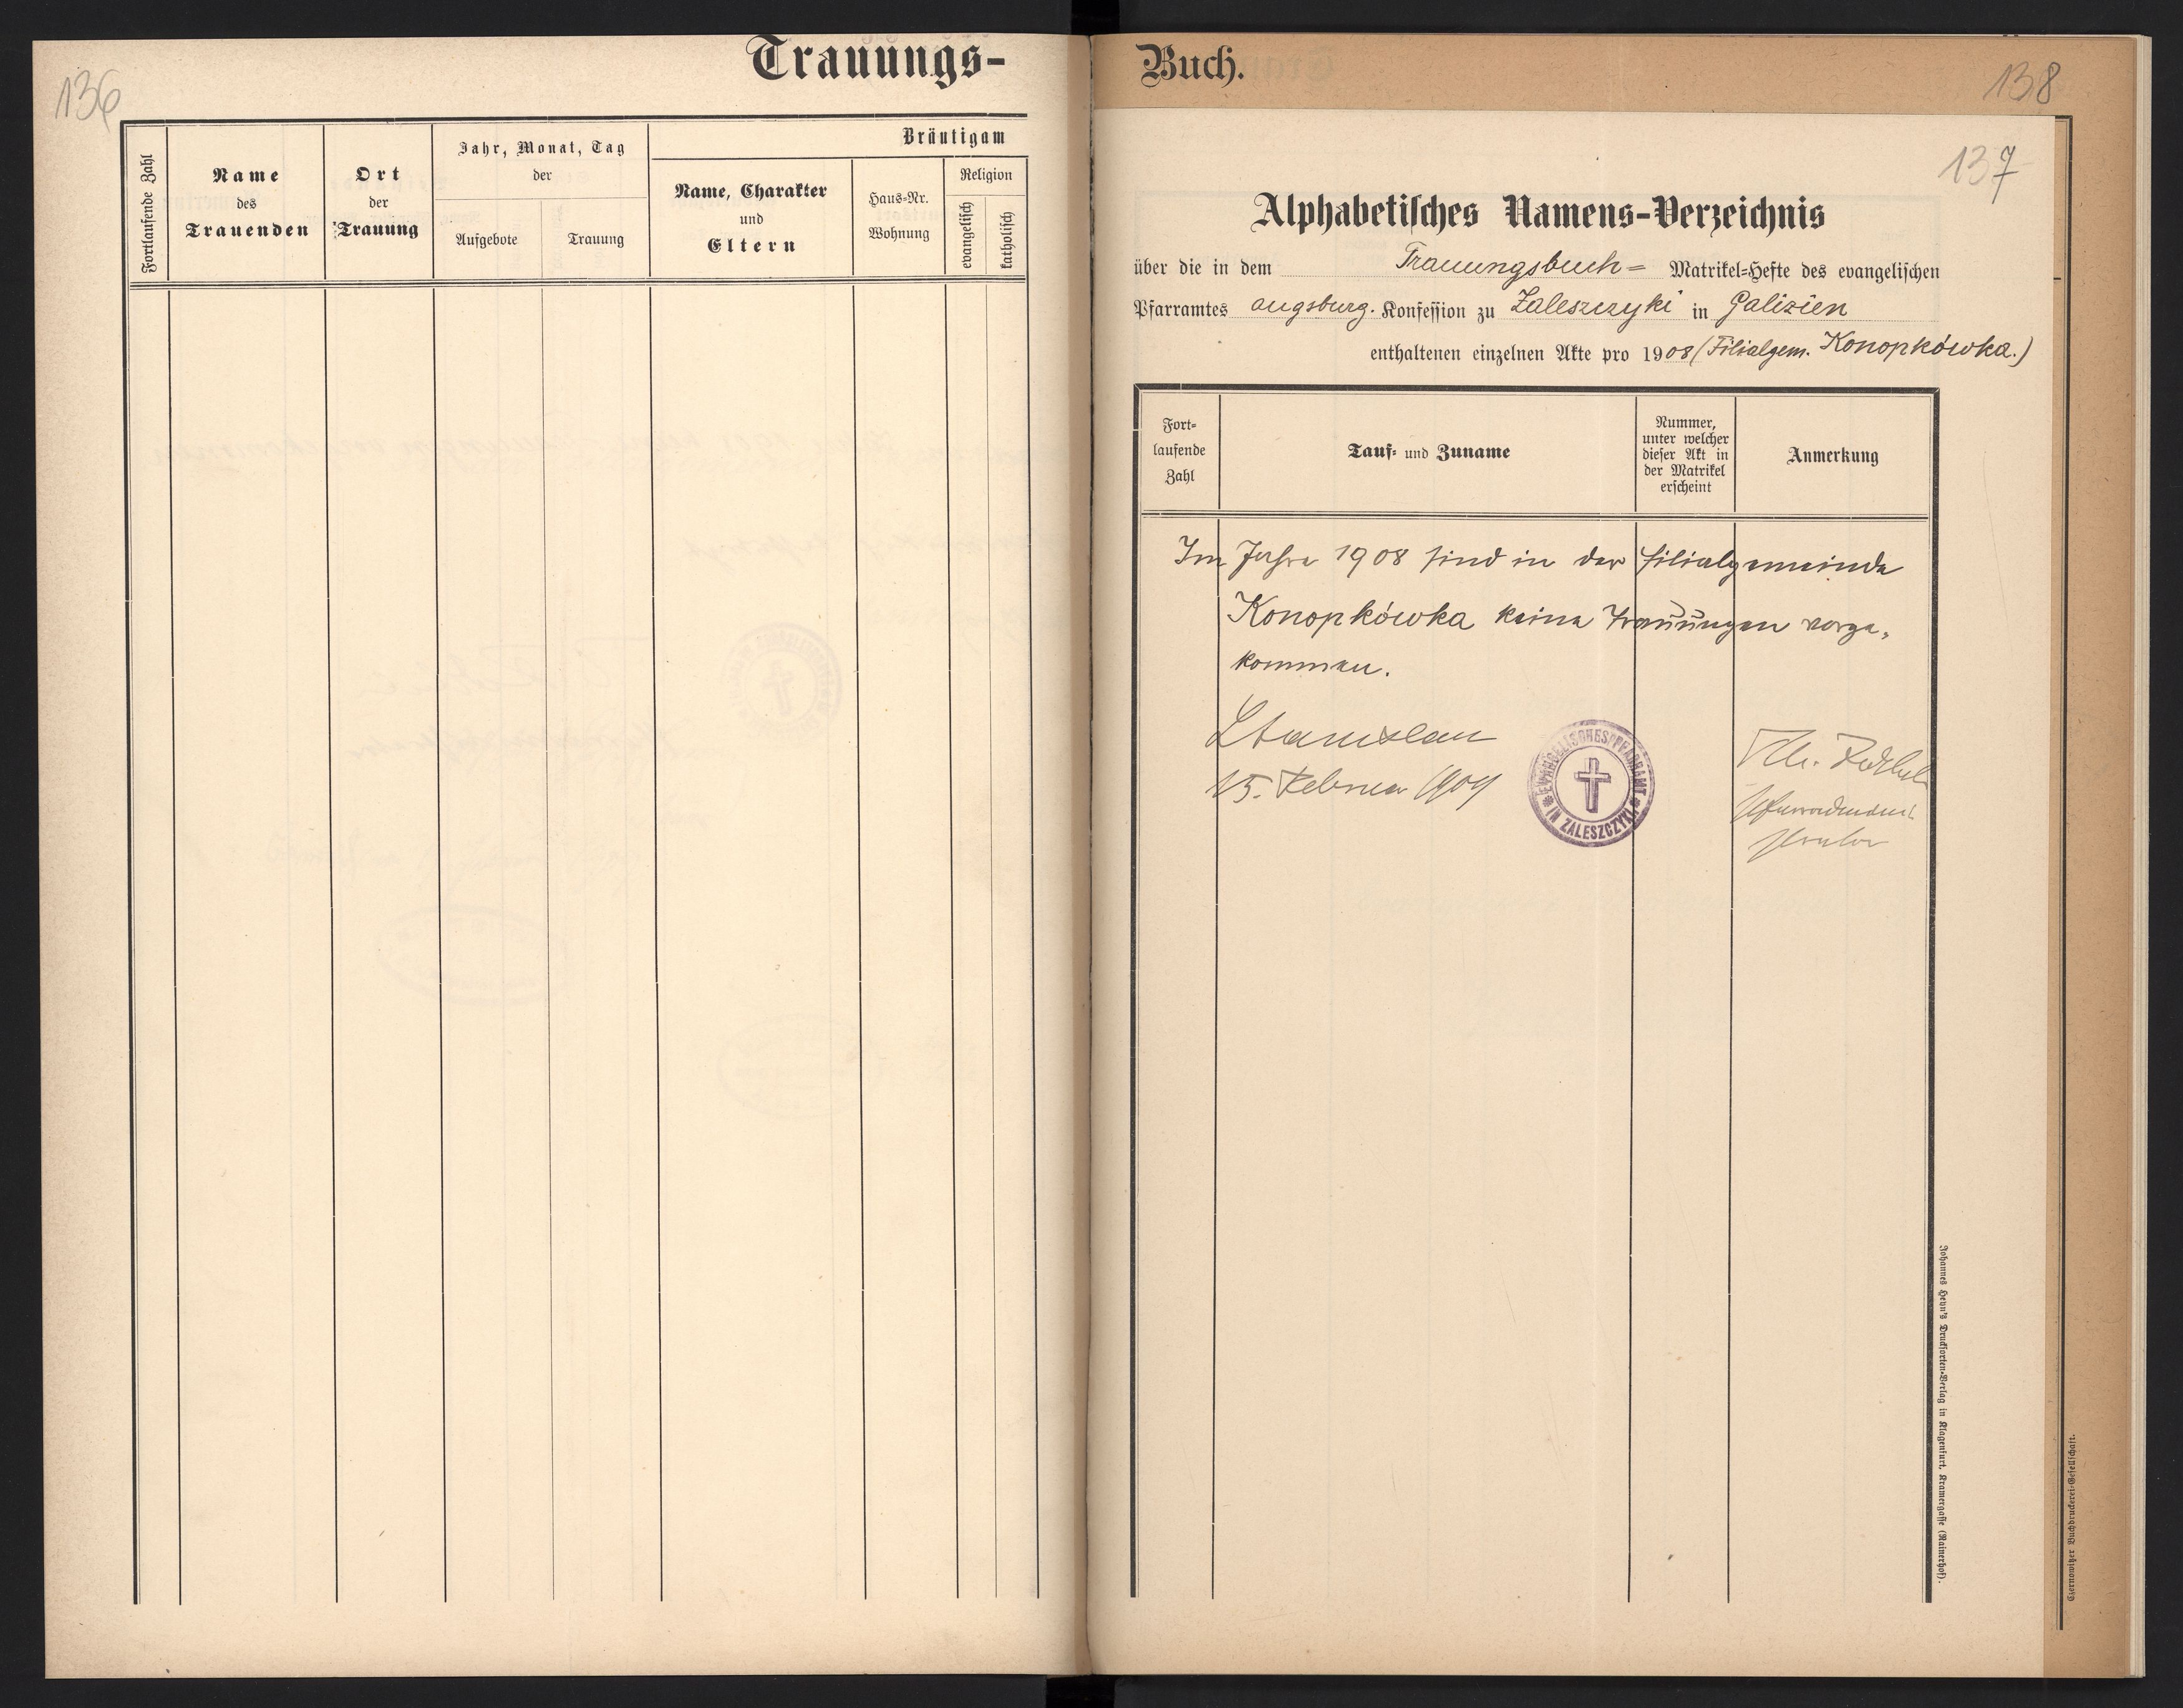 136
Trauungs-
Fortlaufende Zahl
Name
des
Trauenden
Ort
der
Trauung
Jahr, Monat, Tag
der
Aufgebote
Trauung
Bräutigam
Name, Charakter
und
Eltern
Haus-Nr.
Wohnung
Religion
evangelisch
katholisch
Buch.
138
137
Alphabetisches Namens-Verzeichnis
über die in dem Trauungsbuch- Matrikel-Hefte des evangelischen
Pfarramtes augsburg. Konfession zu Zaleszczyki in Galizien
enthaltenen einzelnen Akte pro 1908 (Filialgem. Konopkówka.)
Fort-
laufende
Zahl
Tauf- und Zuname
Nummer,
unter welcher
dieser Akt in
der Matrikel
erscheint
Anmerkung
Im Jahre 1908 sind in der Filialgemeinde
Konopkówka keine Trauungen vorge-
kommen.
Stanislau
15. Februar 1909
EVANGELISCHES PFARRAMT
IN ZALESZCZYKI
Johannes Heyn's Drucksorten-Verlag in Klagenfurt, Kramergasse (Rainerhof).
Czernowitzer Buchdruckerei-Gesellschaft.